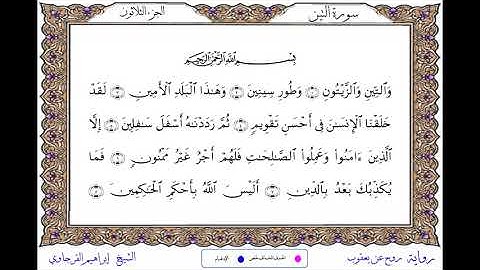 سورة التين
الجزء الثلاثون
بِسْمِ اللَّهِ الرَّحْمَٰنِ الرَّحِيمِ
وَالتِّينِ وَالزَّيْتُونِ ۝ وَطُورِ سِينِينَ ۝ وَهَٰذَا الْبَلَدِ الْأَمِينِ ۝ لَقَدْ
خَلَقْنَا الْإِنسَٰنَ فِي أَحْسَنِ تَقْوِيمٍ ۝ ثُمَّ رَدَدْنَٰهُ أَسْفَلَ سَٰفِلِينَ ۝ إِلَّا
الَّذِينَ ءَامَنُوا وَعَمِلُوا الصَّٰلِحَٰتِ فَلَهُمْ أَجْرٌ غَيْرُ مَمْنُونٍ ۝ فَمَا
يُكَذِّبُكَ بَعْدُ بِالدِّينِ ۝ أَلَيْسَ اللَّهُ بِأَحْكَمِ الْحَٰكِمِينَ ۝
رواية روح عن يعقوب
الإدغام
الشيخ إبراهيم الفرجاوي